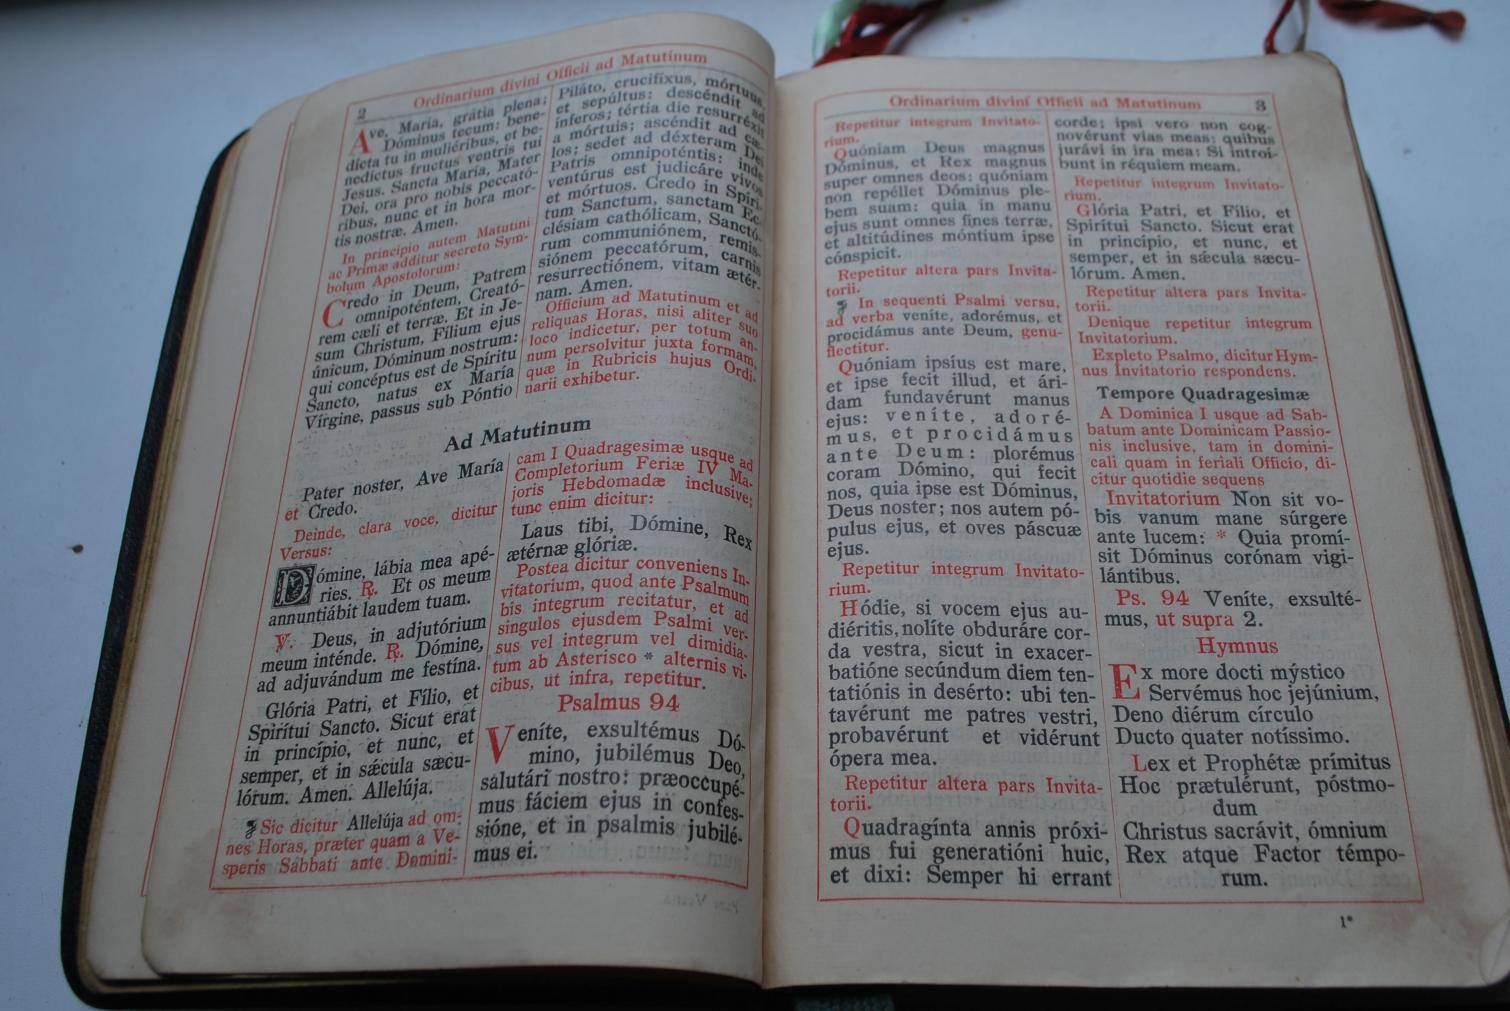 2 Ordinarium divini Officii ad Matutinum
Ave, María, grátia plena;
Dóminus tecum: bene-
dícta tu in muliéribus, et be-
nedíctus fructus ventris tui
Jesus. Sancta María, Mater
Dei, ora pro nobis peccató-
ribus, nunc et in hora mor-
tis nostræ. Amen.
In principio autem Matutini
ac Primæ additur secreto Sym-
bolum Apostolorum:
Credo in Deum, Patrem
omnipoténtem, Creató-
rem cæli et terræ. Et in Je-
sum Christum, Fílium ejus
únicum, Dóminum nostrum:
qui concéptus est de Spíritu
Sancto, natus ex María
Vírgine, passus sub Póntio
Piláto, crucifíxus, mórtuus,
et sepúltus: descéndit ad
ínferos; tértia die resurréxit
a mórtuis; ascéndit ad cæ-
los; sedet ad déxteram Dei
Patris omnipoténtis: inde
ventúrus est judicáre vivos
et mórtuos. Credo in Spíri-
tum Sanctum, sanctam Ec-
clésiam cathólicam, Sanctó-
rum communiónem, remis-
siónem peccatórum, carnis
resurrectiónem, vitam ætér-
nam. Amen.
Officium ad Matutinum et ad
reliquas Horas, nisi aliter suo
loco indicetur, per totum an-
num persolvitur juxta formam,
quæ in Rubricis hujus Ordi-
narii exhibetur.
Ad Matutinum
Pater noster, Ave María
et Credo.
Deinde, clara voce, dicitur
Versus:
Dómine, lábia mea apé-
ries. ℟. Et os meum
annuntiábit laudem tuam.
℣. Deus, in adjutórium
meum inténde. ℟. Dómine,
ad adjuvándum me festína.
Glória Patri, et Fílio, et
Spirítui Sancto. Sicut erat
in princípio, et nunc, et
semper, et in sǽcula sæcu-
lórum. Amen. Allelúja.
Sic dicitur Allelúja ad om-
nes Horas, præter quam a Ve-
speris Sábbati ante Domini-
cam I Quadragesimæ usque ad
Completorium Feriæ IV Ma-
joris Hebdomadæ inclusive;
tunc enim dicitur:
Laus tibi, Dómine, Rex
ætérnæ glóriæ.
Postea dicitur conveniens In-
vitatorium, quod ante Psalmum
bis integrum recitatur, et ad
singulos ejusdem Psalmi ver-
sus vel integrum vel dimidia-
tum ab Asterisco * alternis vi-
cibus, ut infra, repetitur.
Psalmus 94
Veníte, exsultémus Dó-
mino, jubilémus Deo,
salutári nostro: præoccupé-
mus fáciem ejus in confes-
sióne, et in psalmis jubilé-
mus ei.
Ordinarium divini Officii ad Matutinum 3
Repetitur integrum Invitato-
rium.
Quóniam Deus magnus
Dóminus, et Rex magnus
super omnes deos: quóniam
non repéllet Dóminus ple-
bem suam: quia in manu
ejus sunt omnes fines terræ,
et altitúdines móntium ipse
cónspicit.
Repetitur altera pars Invita-
torii.
In sequenti Psalmi versu,
ad verba veníte, adorémus, et
procidámus ante Deum, genu-
flectitur.
Quóniam ipsíus est mare,
et ipse fecit illud, et ári-
dam fundavérunt manus
ejus: veníte, adoré-
mus, et procidámus
ante Deum: plorémus
coram Dómino, qui fecit
nos, quia ipse est Dóminus,
Deus noster; nos autem pó-
pulus ejus, et oves páscuæ
ejus.
Repetitur integrum Invitato-
rium.
Hódie, si vocem ejus au-
diéritis, nolíte obduráre cor-
da vestra, sicut in exacer-
batióne secúndum diem ten-
tatiónis in desérto: ubi ten-
tavérunt me patres vestri,
probavérunt et vidérunt
ópera mea.
Repetitur altera pars Invita-
torii.
Quadragínta annis próxi-
mus fui generatióni huic,
et dixi: Semper hi errant
corde; ipsi vero non cog-
novérunt vias meas: quibus
jurávi in ira mea: Si introí-
bunt in réquiem meam.
Repetitur integrum Invitato-
rium.
Glória Patri, et Fílio, et
Spirítui Sancto. Sicut erat
in princípio, et nunc, et
semper, et in sǽcula sæcu-
lórum. Amen.
Repetitur altera pars Invita-
torii.
Denique repetitur integrum
Invitatorium.
Expleto Psalmo, dicitur Hym-
nus Invitatorio respondens.
Tempore Quadragesimæ
A Dominica I usque ad Sab-
batum ante Dominicam Passio-
nis inclusive, tam in domini-
cali quam in feriali Officio, di-
citur quotidie sequens
Invitatorium Non sit vo-
bis vanum mane súrgere
ante lucem: * Quia promí-
sit Dóminus corónam vigi-
lántibus.
Ps. 94 Veníte, exsulté-
mus, ut supra 2.
Hymnus
Ex more docti mýstico
Servémus hoc jejúnium,
Deno diérum círculo
Ducto quater notíssimo.
Lex et Prophétæ prímitus
Hoc prætulérunt, póstmo-
dum
Christus sacrávit, ómnium
Rex atque Factor témpo-
rum.
1*